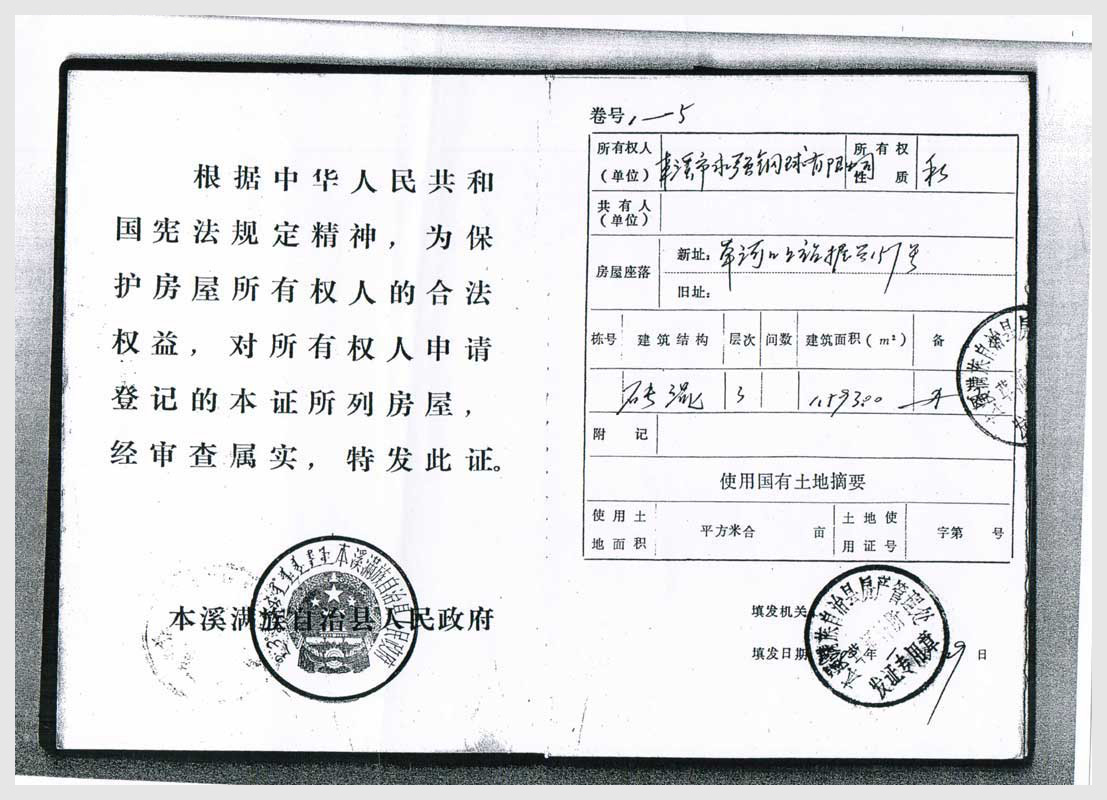 根据中华人民共和
国宪法规定精神，为保
护房屋所有权人的合法
权益，对所有权人申请
登记的本证所列房屋，
经审查属实，特发此证。
本溪满族自治县人民政府
本溪满族自治县人民政府
卷号 1—5
所有权人
（单位）
本溪市永强钢球有限公司
所有权
性质
私
共有人
（单位）
房屋座落
新址：草河口
157号
旧址：
栋号 建筑结构 层次 间数 建筑面积（m²） 备
砖混 3
附记
使用国有土地摘要
使用土
地面积
平方米合 亩
土地使
用证号
字第 号
填发机关
填发日期 年 日
满族自治县房产管理办
发证专用章
满族自治县房
发